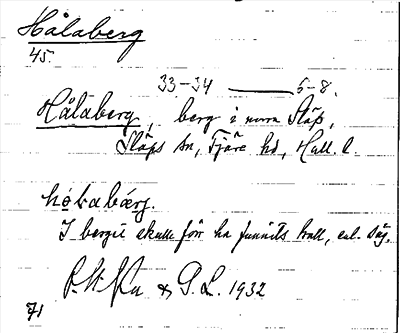 Hålaberg
45.
33–34 —— 5–8.
Hålaberg, berg i norra Släp,
Släps sn, Fjäre hd, Hall. l.
hó̤labárg.
I berget skulle förr ha funnits troll, enl. säg.
& G. L. 1932
71